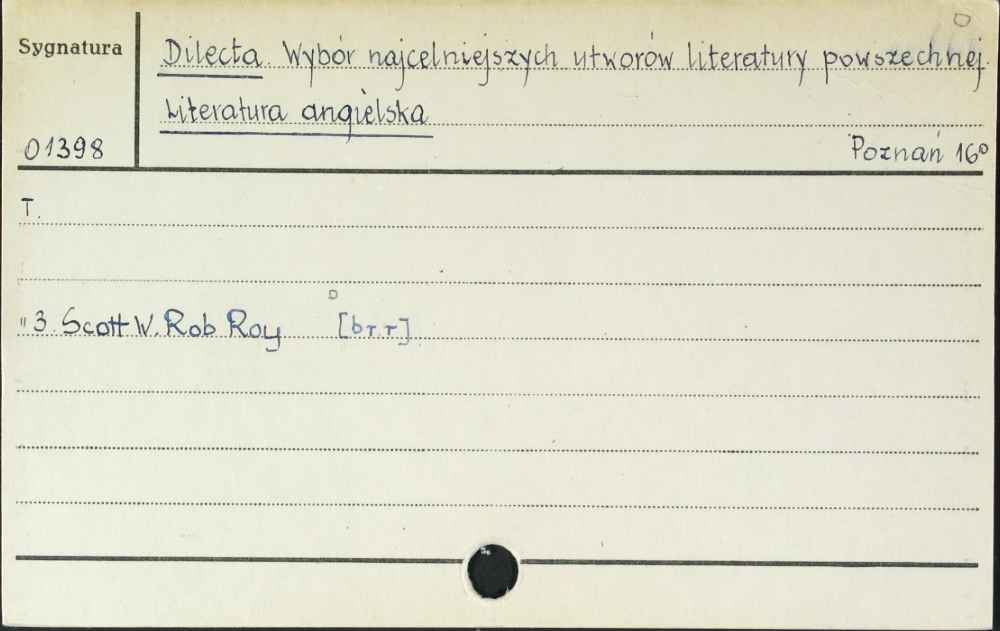 Sygnatura
Dilecta. Wybór najcelniejszych utworów literatury powszechnej.
Literatura angielska
01398
Poznań 16°
T.
" 3. Scott W. Rob Roy [b.r.r]